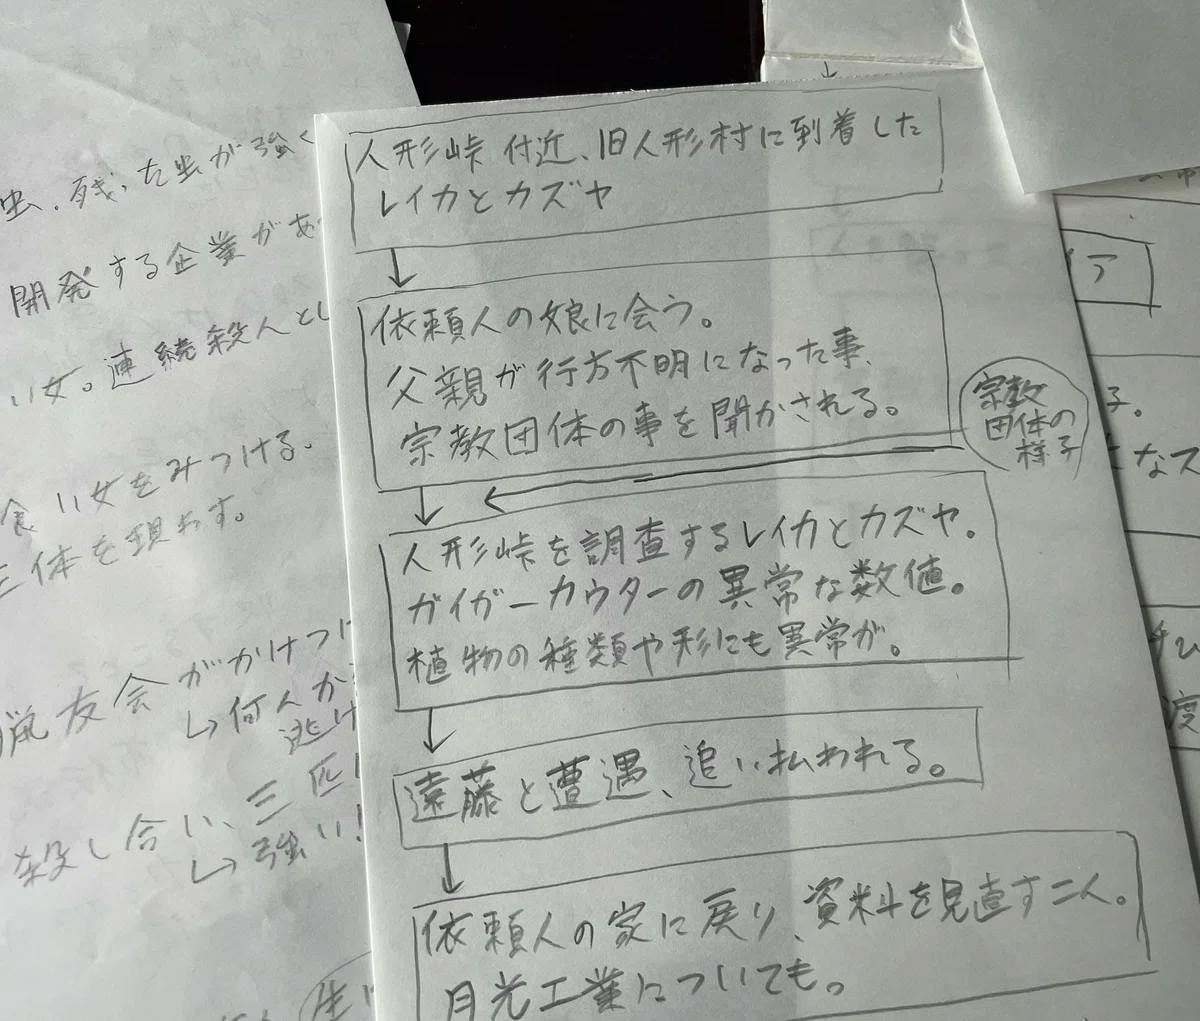 人形峠付近、旧人形村に到着した
レイカとカズヤ
依頼人の娘に会う。
父親が行方不明になった事、
宗教団体の事を聞かされる。
宗教
団体の
様子
人形峠を調査するレイカとカズヤ。
ガイガーカウターの異常な数値。
植物の種類や形にも異常が。
遠藤と遭遇、追い払われる。
依頼人の家に戻り、資料を見直す二人。
月光工業についても。
虫、残った虫が強く
開発する企業があ
い女。連続殺人とし
食い女をみつける。
三体を現わす。
猟友会がかけつけ
↳何人か
逃げ
殺し合い、三匹
↳強い!
ア
子。
なス
渡